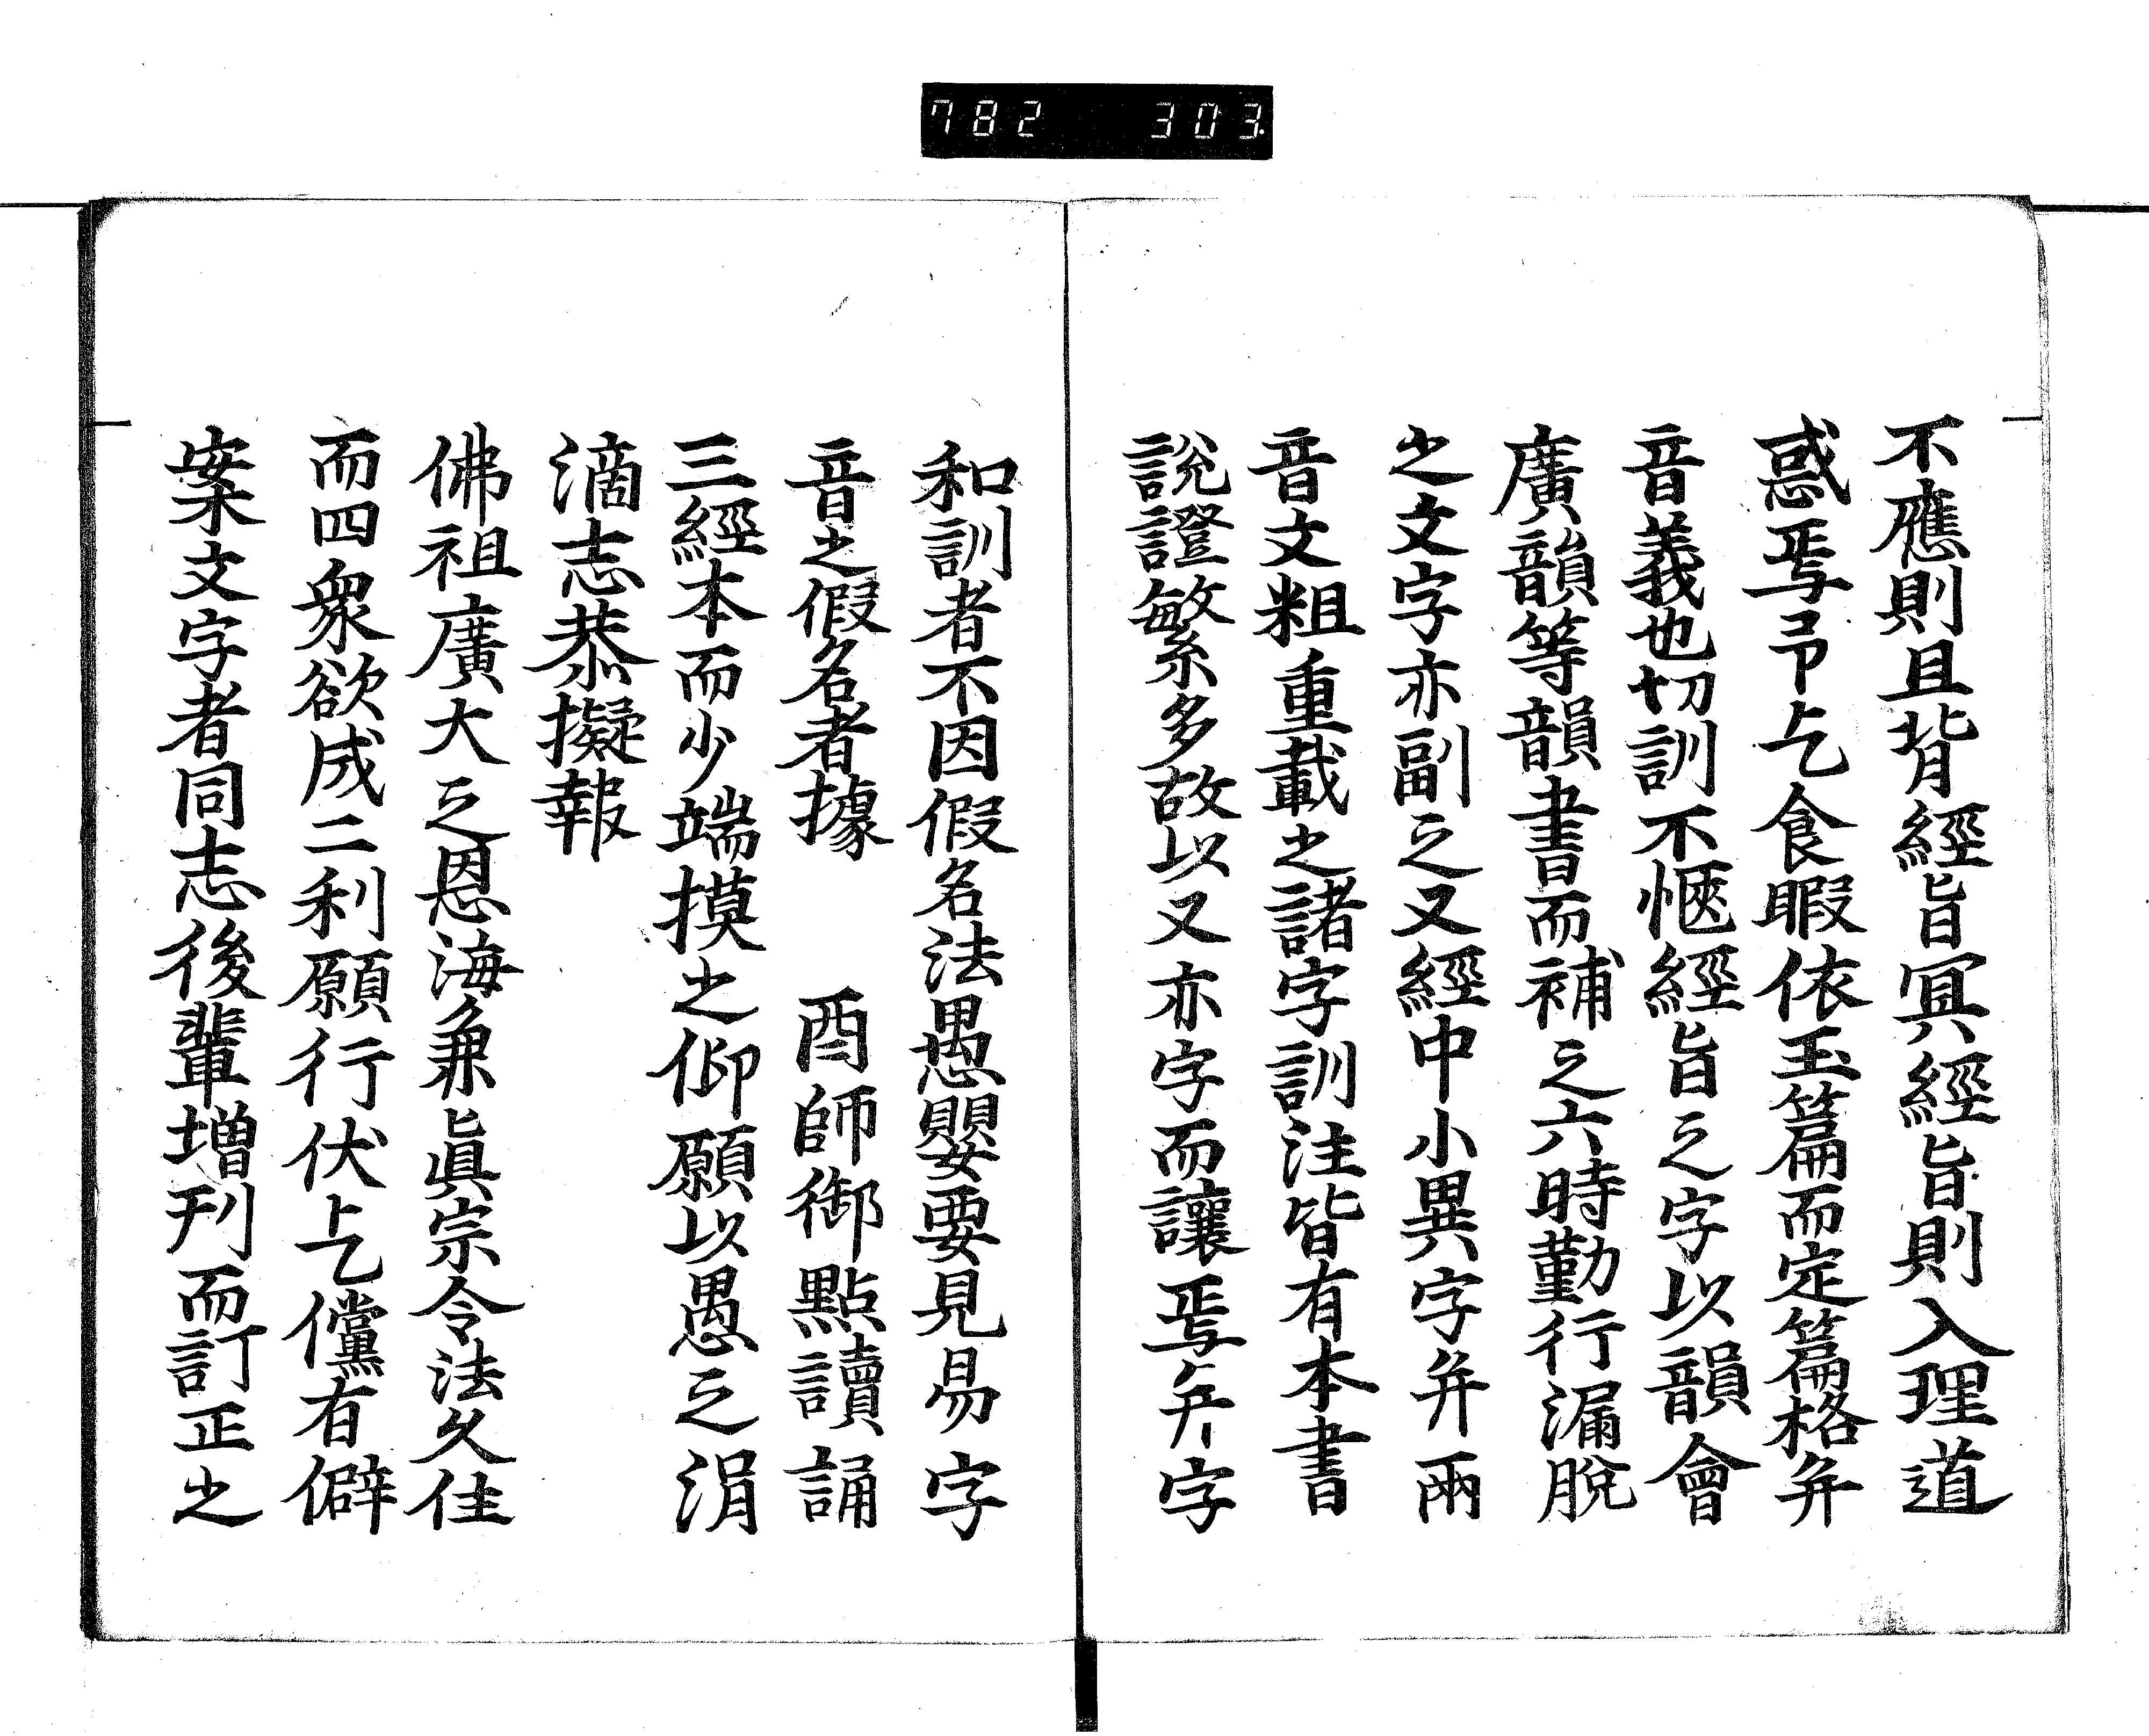 782 303
不應則且背經旨冥經旨則入理道
惑焉予乞食暇依玉篇而定篇格并
音義也切訓不愜經旨之字以韻會
廣韻等韻書而補之六時勤行漏脫
之文字亦副之又經中小異字并兩
音文粗重載之諸字訓注皆有本書
說證繁多故以又亦字而讓焉矣字
和訓者不因假名法愚嬰要見易字
音之假名者據 酉師御點讀誦
三經本而少端摸之仰願以愚之涓
滴志恭擬報
佛祖廣大之恩海兼眞宗令法久住
而四衆欲成二利願行伏乞儻有僻
案文字者同志後輩增刋而訂正之